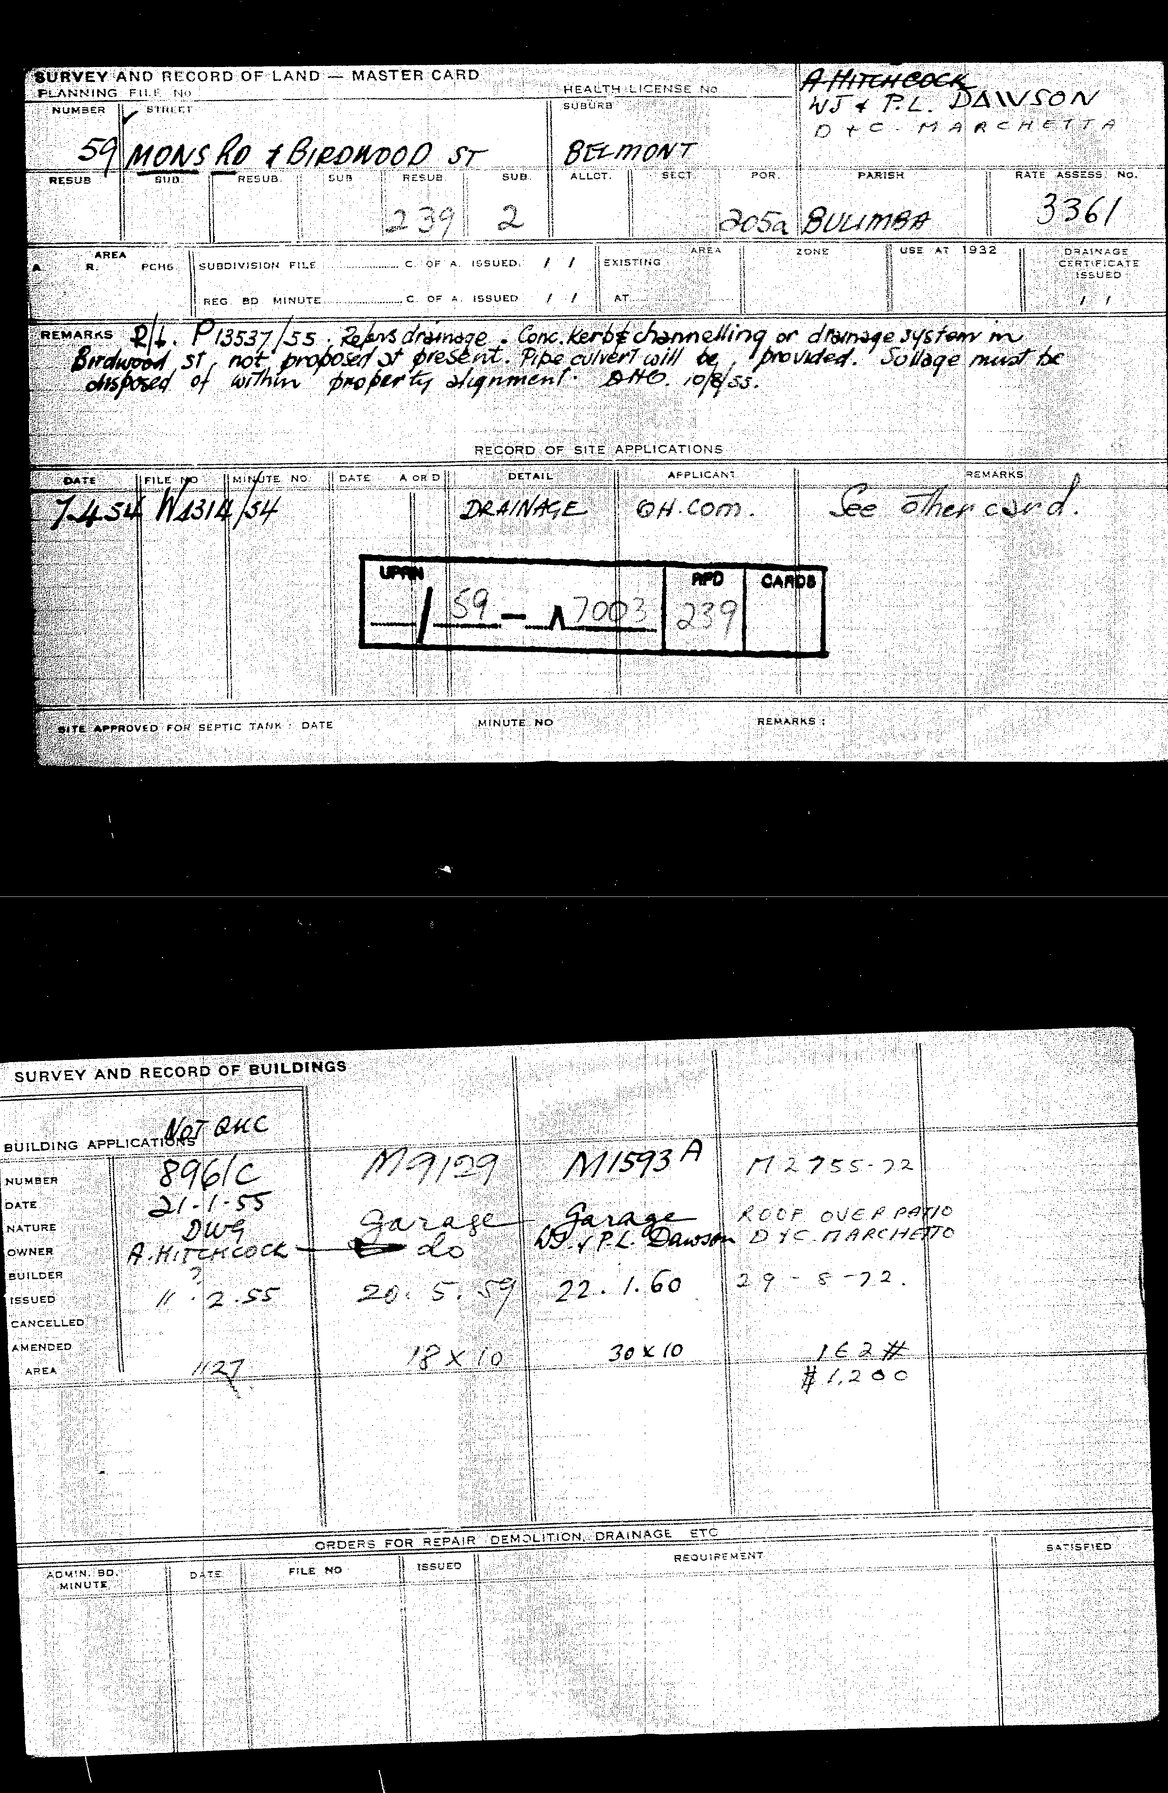 SURVEY AND RECORD OF LAND — MASTER CARD
PLANNING FILE No
HEALTH LICENSE No
A HITCHCOCK
WJ & P.L. DAWSON
D & C. MARCHETTA
NUMBER STREET SUBURB
59 MONS RD & BIRDWOOD ST BELMONT
RESUB SUB. RESUB. SUB RESUB. SUB. ALLOT. SECT. POR. PARISH RATE ASSESS. No.
239 2 205a BULIMBA 3361
AREA
A. R. PCHS.
SUBDIVISION FILE C. OF A. ISSUED. / /
REG. BD MINUTE C. OF A. ISSUED / /
EXISTING AREA
AT
ZONE
USE AT 1932
DRAINAGE
CERTIFICATE
ISSUED
/ /
REMARKS R/L. P13537/55. Re/ens drainage. Conc. Kerb & channelling or drainage system in
Birdwood st, not proposed at present. Pipe culvert will be provided. Sullage must be
disposed of within property alignment. 10/8/55.
RECORD OF SITE APPLICATIONS
DATE FILE NO MINUTE NO. DATE A OR D DETAIL APPLICANT REMARKS
7-4-54 W1314/54 DRAINAGE QH.Com. See other card.
UPRN RPD CARDS
/ 59 — 7003 239
SITE APPROVED FOR SEPTIC TANK : DATE MINUTE NO REMARKS :
SURVEY AND RECORD OF BUILDINGS
NOT QHC
BUILDING APPLICATIONS
NUMBER 8961C M9129 M1593A M2755-72
DATE 21-1-55
NATURE DWG garage garage ROOF OVER PATIO
OWNER A. HITCHCOCK do WJ. & P.L. Dawson D & C. MARCHETTO
BUILDER ?
ISSUED 11.2.55 20.5.59 22.1.60 29-8-72.
CANCELLED
AMENDED
AREA 1127 18 x 10 30 x 10 162 #
$1,200
ORDERS FOR REPAIR DEMOLITION, DRAINAGE ETC
ADMIN. BD. MINUTE DATE FILE NO ISSUED REQUIREMENT SATISFIED